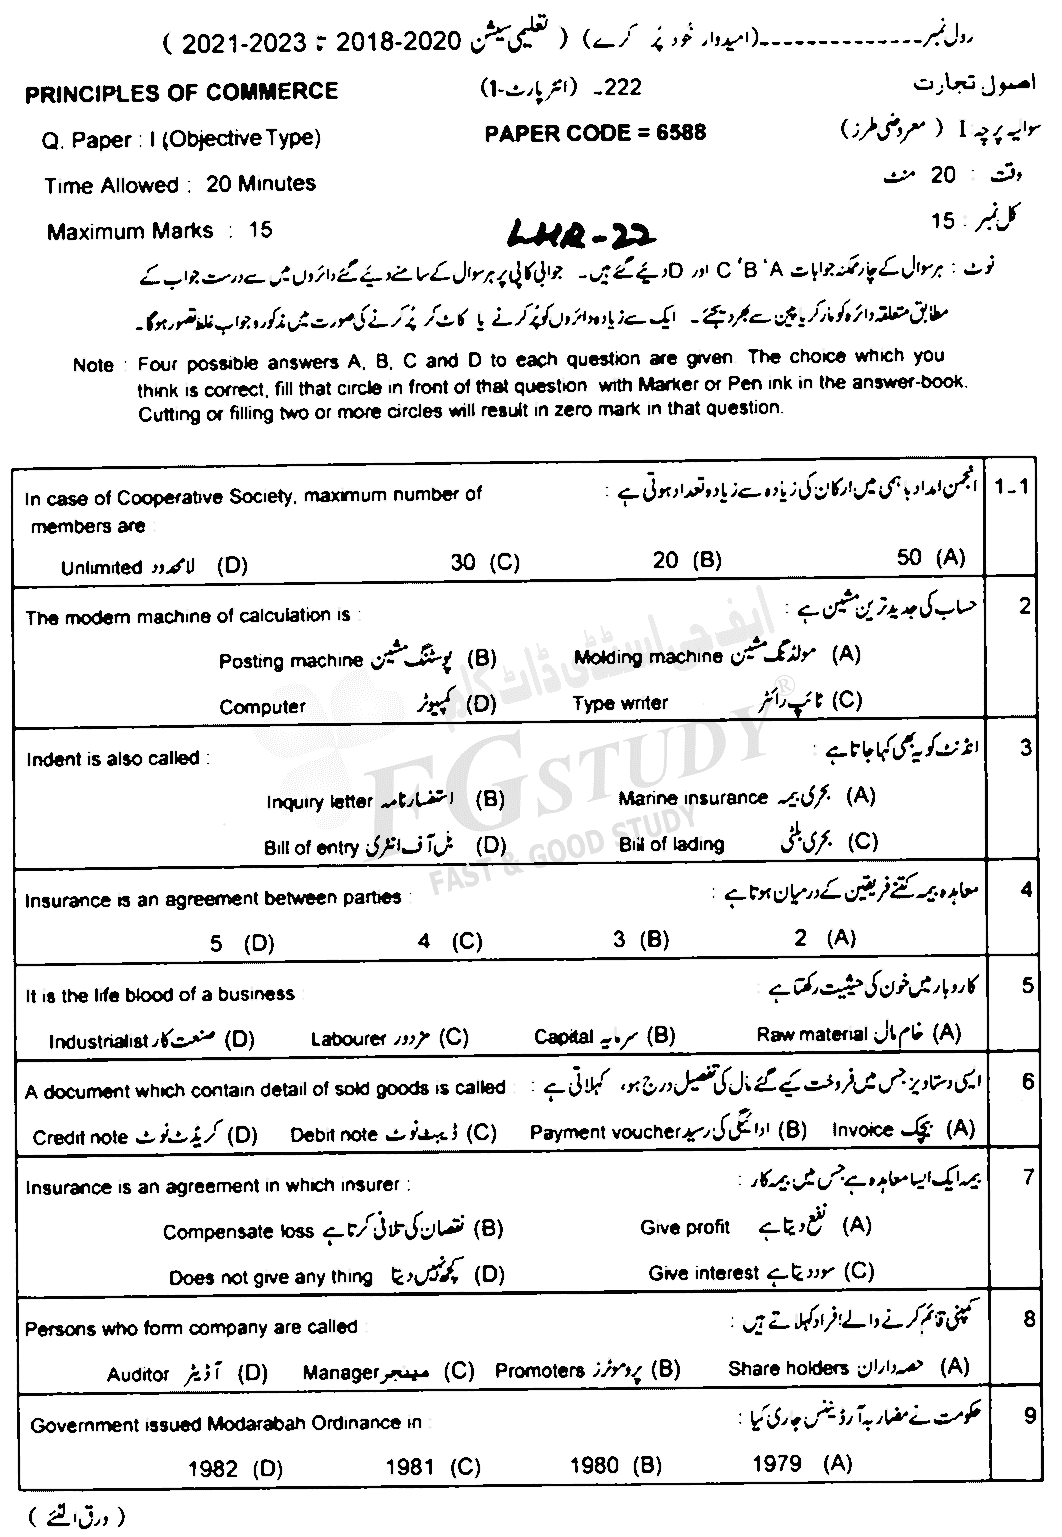 رول نمبر ---------------(امیدوار خود پُر کرے) ( تعلیمی سیشن 2020-2018 تا 2023-2021 )
PRINCIPLES OF COMMERCE 222- (انٹر پارٹ-1) اصول تجارت
Q. Paper : I (Objective Type) PAPER CODE = 6588 سوالیہ پرچہ I ( معروضی طرز)
Time Allowed : 20 Minutes وقت : 20 منٹ
Maximum Marks : 15 LHR-22 کل نمبر : 15
نوٹ : ہر سوال کے چار ممکنہ جوابات A ' B ' C اور D دئیے گئے ہیں۔ جوابی کاپی پر ہر سوال کے سامنے دئیے گئے دائروں میں سے درست جواب کے
مطابق متعلقہ دائرہ کو مارکر یا پین سے بھر دیجئے۔ ایک سے زیادہ دائروں کو پُر کرنے یا کاٹ کر پُر کرنے کی صورت میں مذکورہ جواب غلط تصور ہوگا۔
Note : Four possible answers A, B, C and D to each question are given. The choice which you
think is correct, fill that circle in front of that question with Marker or Pen ink in the answer-book.
Cutting or filling two or more circles will result in zero mark in that question.
In case of Cooperative Society, maximum number of انجمن امداد باہمی میں ارکان کی زیادہ سے زیادہ تعداد ہوتی ہے : 1-1
members are
Unlimited لامحدود (D) 30 (C) 20 (B) 50 (A)
The modern machine of calculation is : حساب کی جدید ترین مشین ہے : 2
Posting machine پوسٹنگ مشین (B) Molding machine مولڈنگ مشین (A)
Computer کمپیوٹر (D) Type writer ٹائپ رائٹر (C)
Indent is also called : انڈنٹ کو یہ بھی کہا جاتا ہے : 3
Inquiry letter استفسار نامہ (B) Marine insurance بحری بیمہ (A)
Bill of entry بل آف انٹری (D) Bill of lading بحری بلٹی (C)
Insurance is an agreement between parties : معاہدہ بیمہ کتنے فریقین کے درمیان ہوتا ہے : 4
5 (D) 4 (C) 3 (B) 2 (A)
It is the life blood of a business : کاروبار میں خون کی حیثیت رکھتا ہے 5
Industrialist صنعت کار (D) Labourer مزدور (C) Capital سرمایہ (B) Raw material خام مال (A)
A document which contain detail of sold goods is called : ایسی دستاویز جس میں فروخت کیے گئے مال کی تفصیل درج ہو، کہلاتی ہے 6
Credit note کریڈٹ نوٹ (D) Debit note ڈیبٹ نوٹ (C) Payment voucher ادائیگی کی رسید (B) Invoice بیجک (A)
Insurance is an agreement in which insurer : بیمہ ایک ایسا معاہدہ ہے جس میں بیمہ کار : 7
Compensate loss نقصان کی تلافی کرتا ہے (B) Give profit نفع دیتا ہے (A)
Does not give any thing کچھ نہیں دیتا (D) Give interest سود دیتا ہے (C)
Persons who form company are called کمپنی قائم کرنے والے افراد کہلاتے ہیں : 8
Auditor آڈیٹر (D) Manager مینیجر (C) Promoters پروموٹرز (B) Share holders حصہ داران (A)
Government issued Modarabah Ordinance in : حکومت نے مضاربہ آرڈیننس جاری کیا : 9
1982 (D) 1981 (C) 1980 (B) 1979 (A)
( ورق الٹئے )
ایف جی اسٹڈی ڈاٹ کام
FG STUDY ®
FAST & GOOD STUDY